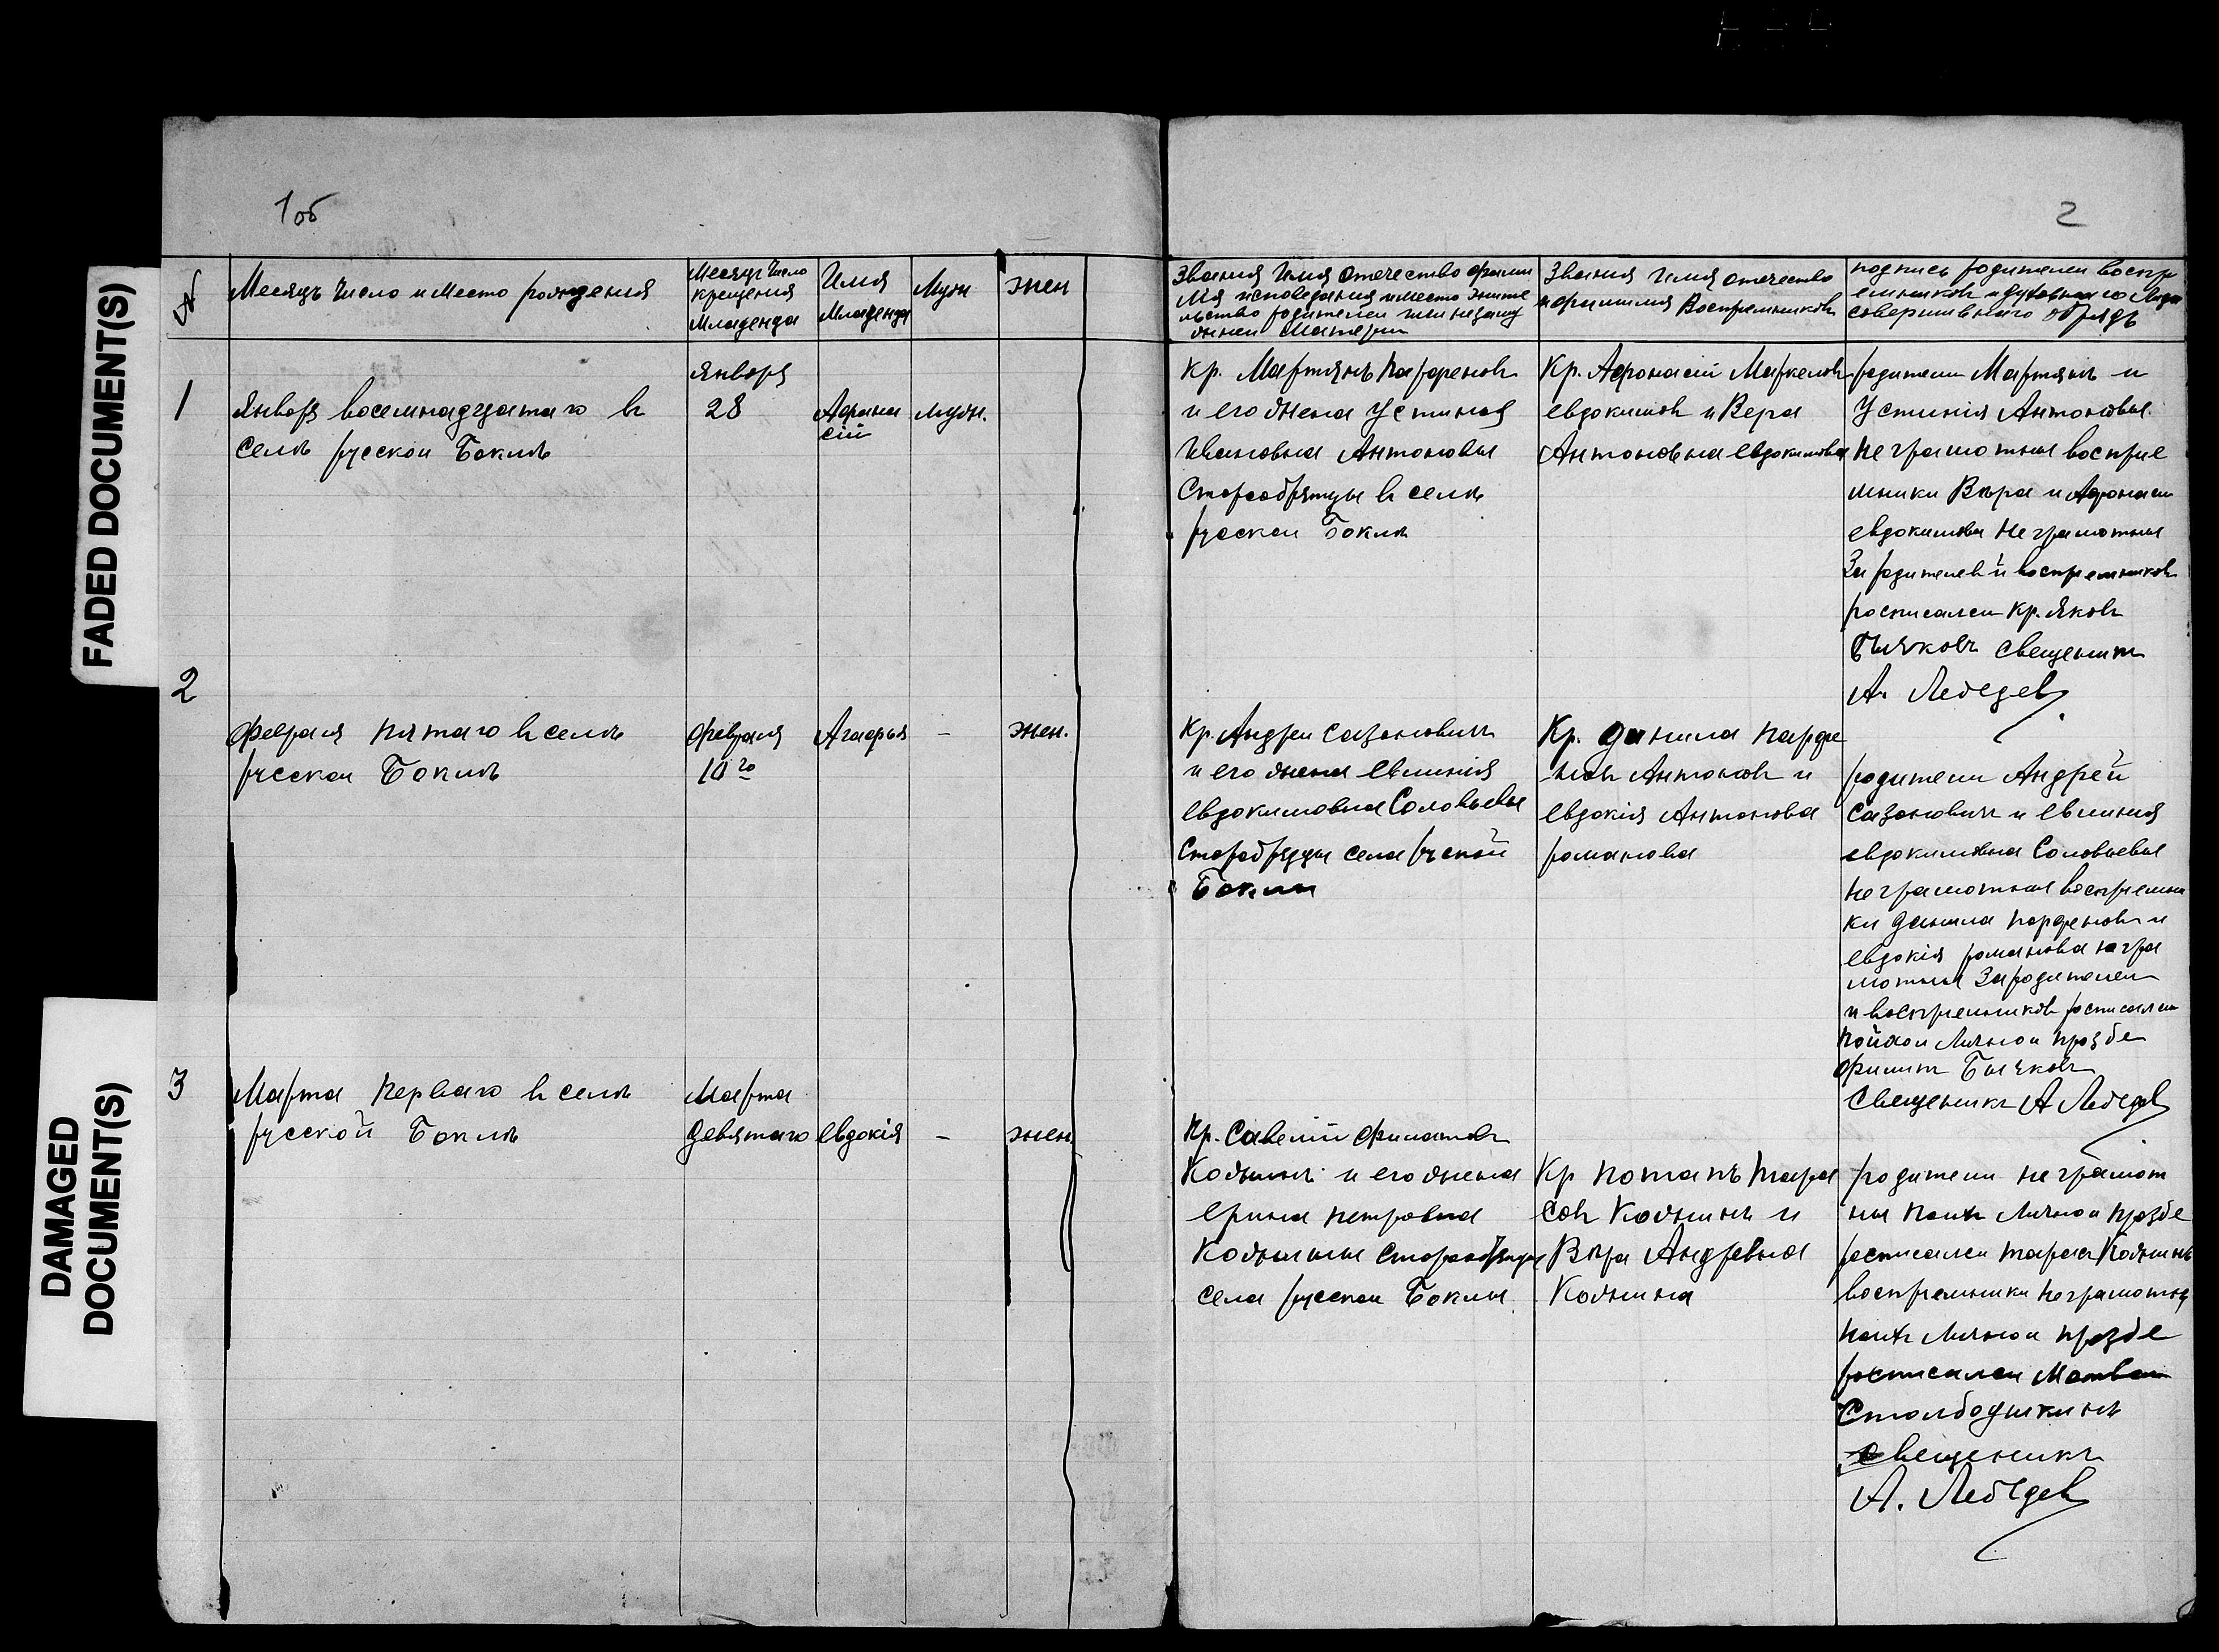 FADED DOCUMENT(S)
DAMAGED
DOCUMENT(S)
1 об
2
№
Месяцъ Число и Место рождения
Месяцъ Число
крещения
Младенца
Имя
Младенца
Мужн
жен
Звания Имя Отечество фами
лия исповедания и место жите
льство родителей или незаму
жней Матери
Звания Имя отечество
и фамилия Восприемниковъ
подпись родителей воспр
емниковъ и духовнаго лица
совершившаго обрядъ
1
Января восемнадцатаго в
селъ русской Боклъ
Января
28
Афана
сій
мужн.
Кр. Мартянъ Парфеновъ
и его жена Устиния
Ивановна Антоновы
Старообрятцы в селъ
русской Боклъ
Кр. Афонасій Маркеловъ
Евдокимовъ и Вера
Антоновна Евдокимова
родители Мартянъ и
Устинія Антоновы
неграмотныя восприе
мники Въра и Афонаси
Евдокимовы Неграмотныя
За родителей и восприемниковъ
росписался Кр. Яковъ
Бычковъ Священик
А. Лебедев
2
Февраля пятаго в селъ
русской Боклъ
Февраля
10го
Агафья
-
жен.
Кр. Андрей Сазоновичъ
и его жена Евминія
Евдокимовна Соловьевы
Старобрядцы села руской
Боклы
Кр. Данила Парфе
новъ Антоновъ и
Евдокія Антонова
романова
родители Андрей
Сазоновичъ и Евминия
Евдокимовна Соловьевы
неграмотныя восприемни
ки Данила Парфеновъ и
Евдокія романова негра
мотныя За родителей
и восприемниковъ росписался
по ихъ Личной прозбе
Филипъ Бычковъ
Священикъ А Лебедев
3
Марта перваго в селъ
русской Боклъ
Марта
девятаго
Евдокія
-
жен.
Кр. Савелій Филатовъ
Кожинъ и его жена
Ерина Петровна
Кожины Старообрятцы
села русской Боклы
Кр Потапъ Тара
совъ Кожинъ и
Въра Андревна
Кожина
родители неграмот
ны поихъ Личной прозбе
росписался Тарасъ Кожинъ
восприемники неграмотны
поихъ Личной прозбе
росписался Матвей
Столбоушкинъ
священикъ
А. Лебедев